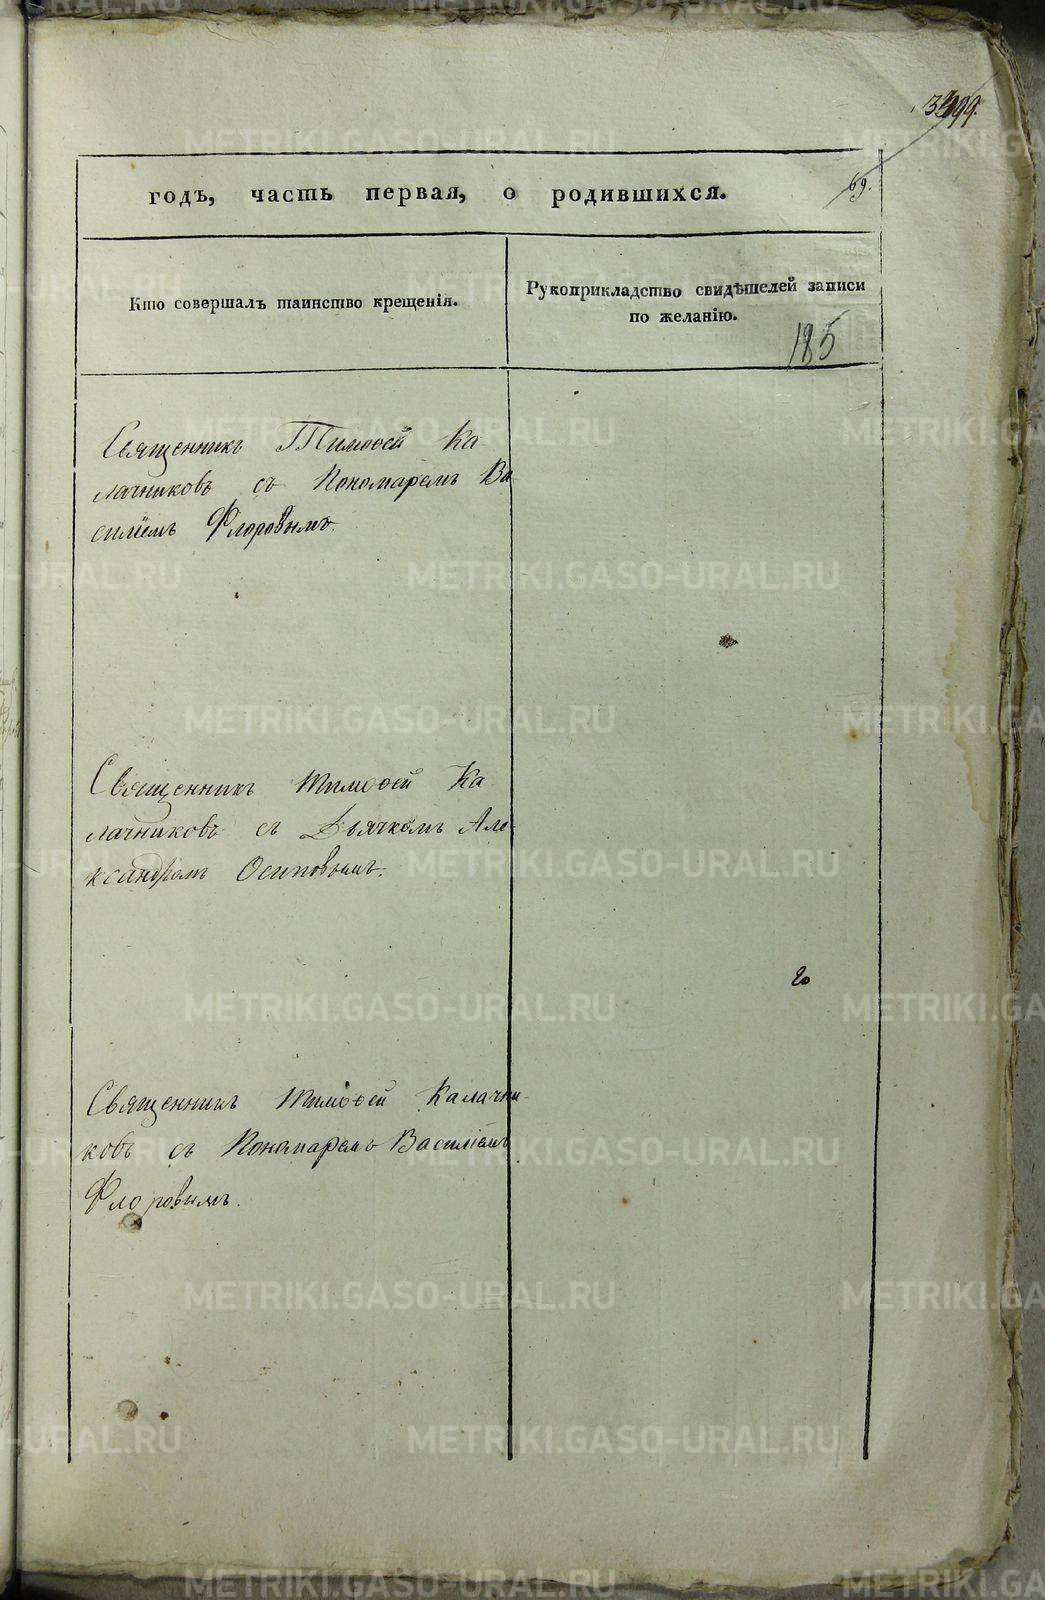 годъ, часть первая, о родившихся.
69.
Кто совершалъ таинство крещенія.
Рукоприкладство свидѣтелей записи
по желанію.
185
Священникъ Тимоѳей Ка
лачниковъ съ Пономаремъ Ва
силіемъ Флоровымъ.
Священникъ Тимоѳей Ка
лачниковъ съ Дьячкомъ Але
ксандромъ Осиповымъ.
20
Священникъ Тимоѳей Калачни
ковъ съ Пономаремъ Василіемъ
Флоровымъ.
METRIKI.GASO-URAL.RU